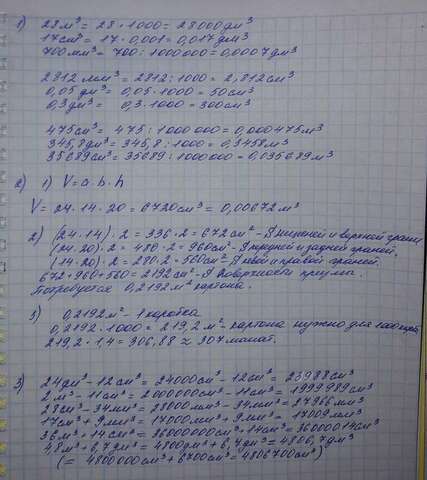 1) 28м³ = 28 · 1000 = 28000дм³
17см³ = 17 · 0,001 = 0,017дм³
700мм³ = 700 : 1000000 = 0,0007дм³
2812 мм³ = 2812 : 1000 = 2,812см³
0,05 дм³ = 0,05 · 1000 = 50см³
0,3дм³ = 0,3 · 1000 = 300см³
475см³ = 475 : 1000 000 = 0,000475м³
345,8дм³ = 345,8 : 1000 = 0,3458м³
35689см³ = 35689 : 1000000 = 0,035689м³
2) 1) V = a · b · h
V = 24 · 14 · 20 = 6720см³ = 0,00672м³
2) (24 · 14) · 2 = 336 · 2 = 672см² - S нижней и верхней грани
(24 · 20) · 2 = 480 · 2 = 960см² - S передней и задней граней,
(14 · 20) · 2 = 280 · 2 = 560см² - S левой и правой граней.
672 + 960 + 560 = 2192см² - S поверхности призмы.
Потребуется 0,2192м² картона.
3) 0,2192м² - 1 коробка
0,2192 · 1000 = 219,2м² - картона нужно для
219,2 · 1,4 = 306,88 ≈ 307манат.
3) 24дм³ - 12см³ = 24000см³ - 12см³ = 23988см³
2м³ - 11см³ = 2000000см³ - 11см³ = 1999989см³
28см³ - 34мм³ = 28000мм³ - 34мм³ = 27966мм³
17см³ + 9мм³ = 17000мм³ + 9мм³ = 17009мм³
36м³ + 14см³ = 36000000см³ + 14см³ = 36000014см³
4,8м³ + 6,7дм³ = 4800дм³ + 6,7дм³ = 4806,7дм³
(= 4800000см³ + 6700см³ = 4806700см³)